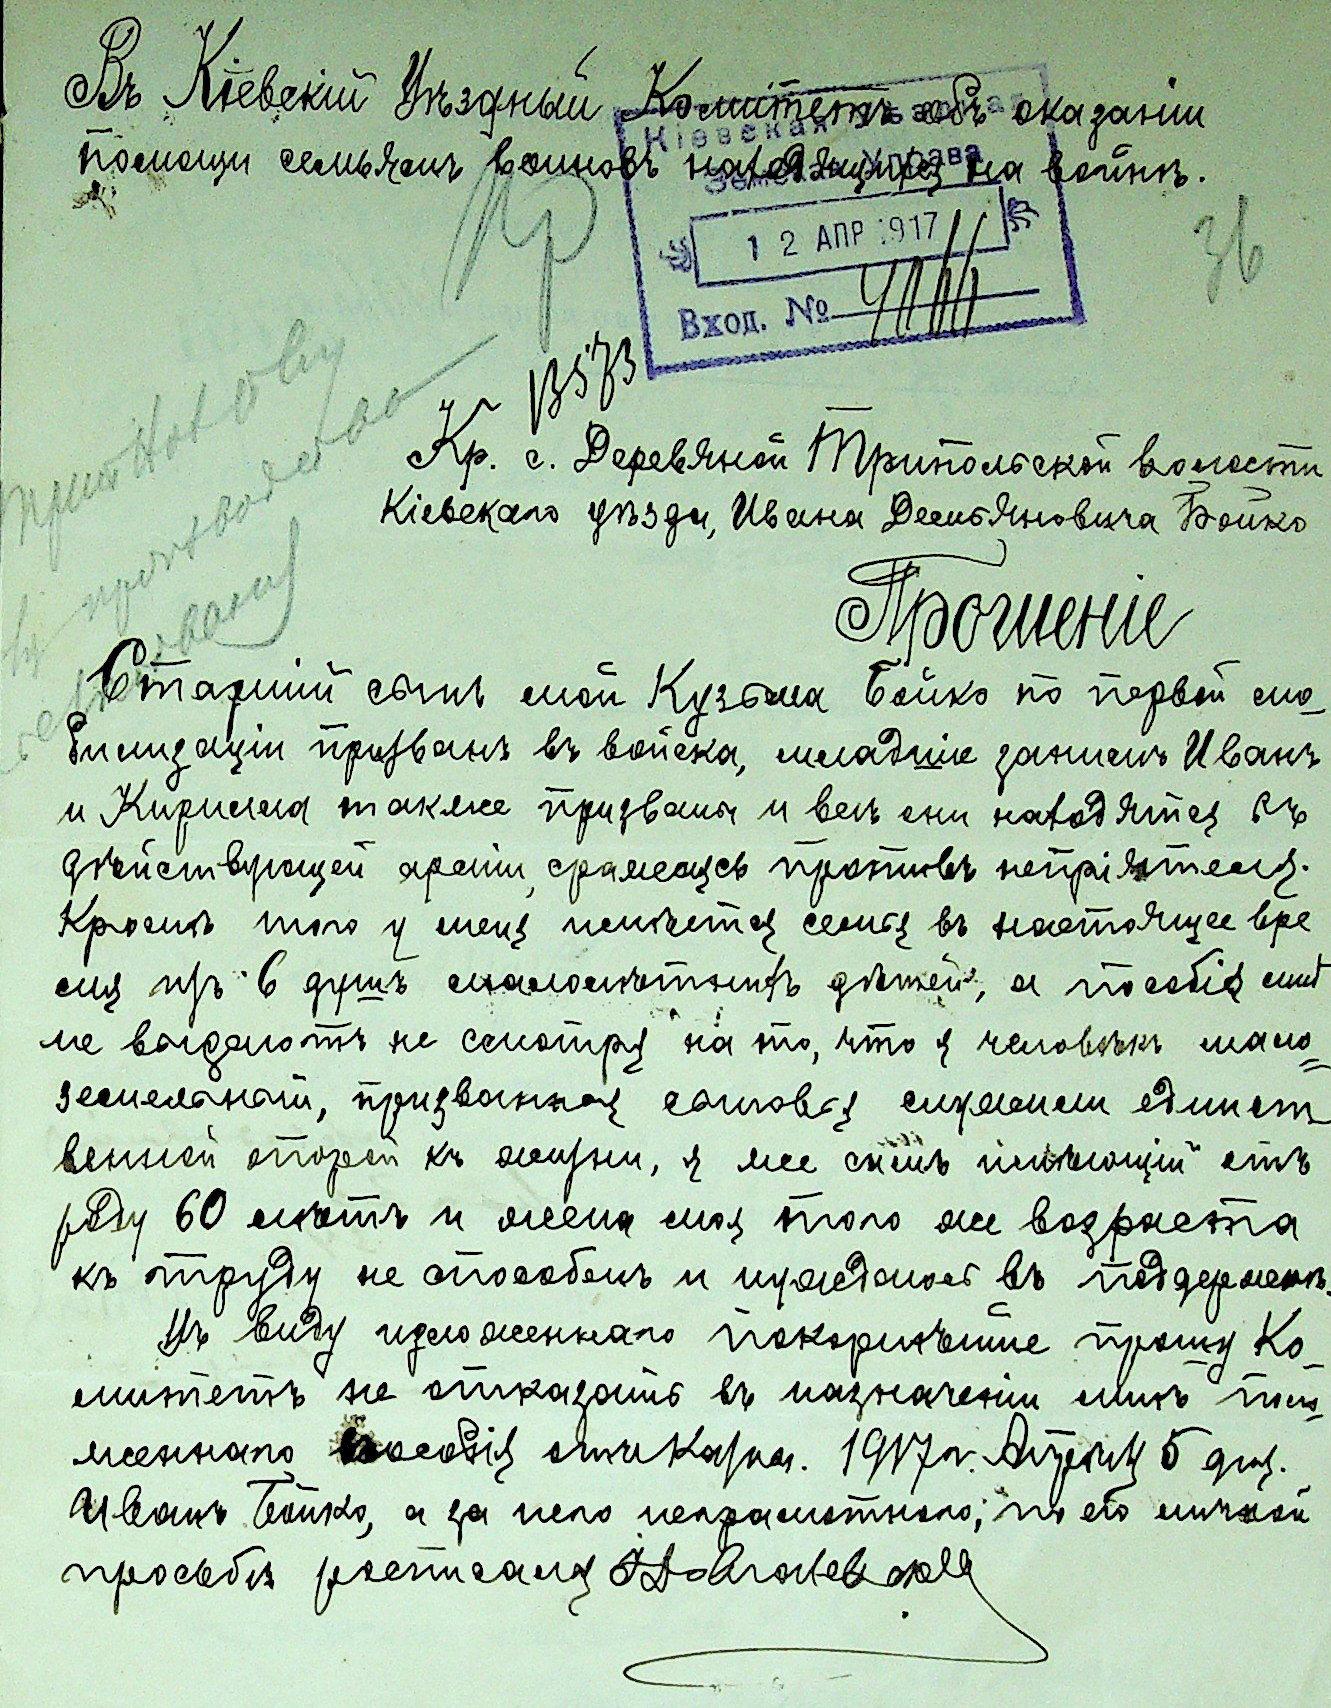 Въ Кіевскій Уѣздный Комитетъ объ оказаніи
помощи семьямъ воиновъ находящихся на войнѣ.
Кіевская Уѣздная
Земская Управа
12 АПР 1917
Вход. № 4066
36
13573
Кр. с. Деревяной Трипольской волости
Кіевскаго уѣзда, Ивана Демьяновича Бойко
Прошеніе
Старшій сынъ мой Кузьма Бойко по первой мо-
билизаціи призванъ въ войска, младшіе затемъ Иванъ
и Кирилла также призваны и всѣ они находятся въ
дѣйствующей арміи, сражаясь противъ непріятеля.
Кромѣ того у меня имѣется семья въ настоящее вре
мя изъ 6 душъ малолѣтнихъ дѣтей, а пособія мнѣ
не выдаютъ не смотря на то, что я человѣкъ мало-
земельный, призванныя сыновья служили единст
венной опорой къ жизни, я же самъ имѣющій отъ
роду 60 лѣтъ и жена моя того же возраста
къ труду не способенъ и нуждаюсь въ поддержкѣ.
Въ виду изложеннаго покорнѣйше прошу Ко-
митетъ не отказать въ назначеніи мнѣ поло-
женнаго пособія отъ Казны. 1917 г. Апрѣля 5 дня.
Иванъ Бойко, а за него неграмотнаго, по его личной
просьбѣ росписался